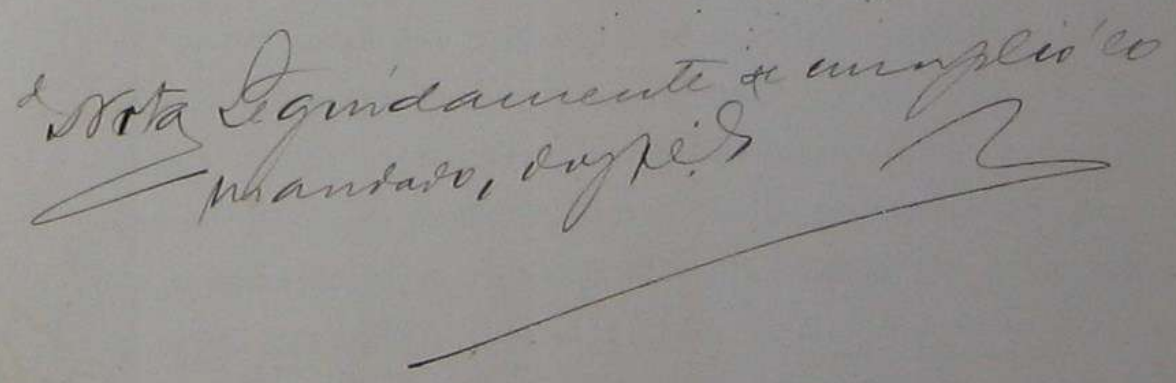 Nota Seguidamente se cumplió lo
mandado, doy fé.